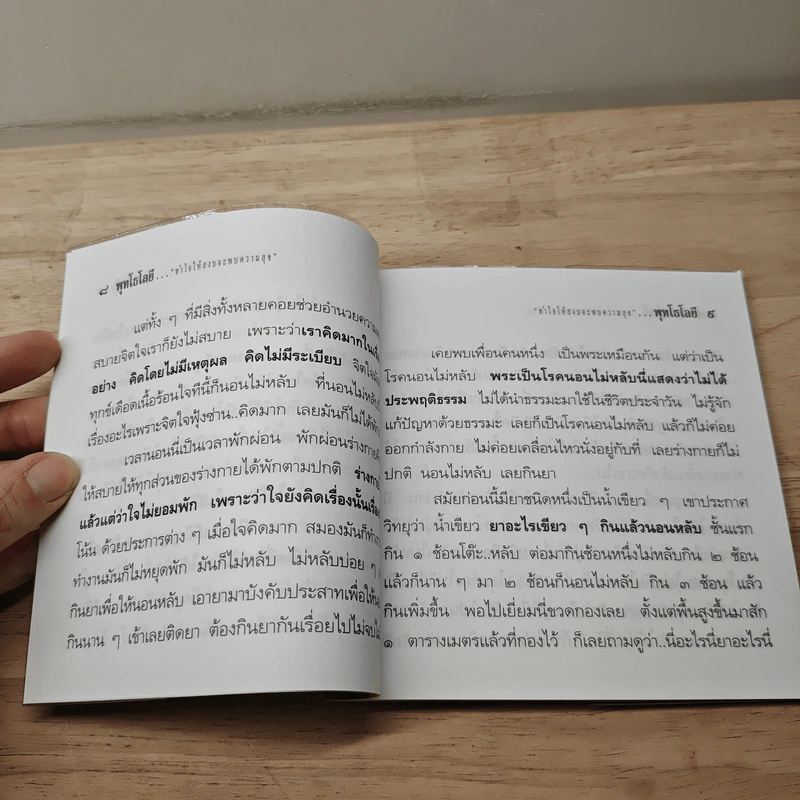 ๘ พุทโธโลยี..."ทำใจให้สงบจะพบความสุข"
แต่ทั้ง ๆ ที่มีสิ่งทั้งหลายคอยช่วยอำนวยความ
สบายจิตใจเราก็ยังไม่สบาย เพราะว่าเราคิดมากใน
อย่าง คิดโดยไม่มีเหตุผล คิดไม่มีระเบียบ จิตใจ
ทุกข์เดือดเนื้อร้อนใจทีนี้ก็นอนไม่หลับ ที่นอนไม่หลับ
เรื่องอะไรเพราะจิตใจฟุ้งซ่าน..คิดมาก เลยมันก็ไม่ได้
เวลานอนนี่เป็นเวลาพักผ่อน พักผ่อนร่างกาย
ให้สบายให้ทุกส่วนของร่างกายได้พักตามปกติ ร่างกาย
แล้วแต่ว่าใจไม่ยอมพัก เพราะว่าใจยังคิดเรื่องนั้น
โน้น ด้วยประการต่าง ๆ เมื่อใจคิดมาก สมองมันก็
ทำงานมันก็ไม่หยุดพัก มันก็ไม่หลับ ไม่หลับบ่อย ๆ
กินยาเพื่อให้นอนหลับ เอายามาบังคับประสาทเพื่อให้
กินนาน ๆ เข้าเลยติดยา ต้องกินยากันเรื่อยไปไม่จบ
"ทำใจให้สงบจะพบความสุข"...พุทโธโลยี ๙
เคยพบเพื่อนคนหนึ่ง เป็นพระเหมือนกัน แต่ว่าเป็น
โรคนอนไม่หลับ พระเป็นโรคนอนไม่หลับนี่แสดงว่าไม่ได้
ประพฤติธรรม ไม่ได้นำธรรมะมาใช้ในชีวิตประจำวัน ไม่รู้จัก
แก้ปัญหาด้วยธรรมะ เลยก็เป็นโรคนอนไม่หลับ แล้วก็ไม่ค่อย
ออกกำลังกาย ไม่ค่อยเคลื่อนไหวนั่งอยู่กับที่ เลยร่างกายก็ไม่
ปกติ นอนไม่หลับ เลยกินยา
สมัยก่อนนี้มียาชนิดหนึ่งเป็นน้ำเขียว ๆ เขาประกาศ
วิทยุว่า น้ำเขียว ยาอะไรเขียว ๆ กินแล้วนอนหลับ ชั้นแรก
กิน ๑ ช้อนโต๊ะ..หลับ ต่อมากินช้อนหนึ่งไม่หลับกิน ๒ ช้อน
แล้วก็นาน ๆ มา ๒ ช้อนก็นอนไม่หลับ กิน ๓ ช้อน แล้ว
กินเพิ่มขึ้น พอไปเยี่ยมนี่ขวดกองเลย ตั้งแต่พื้นสูงขึ้นมาสัก
๑ ตารางเมตรแล้วที่กองไว้ ก็เลยถามดูว่า..นี่อะไรนี่ยาอะไรนี่